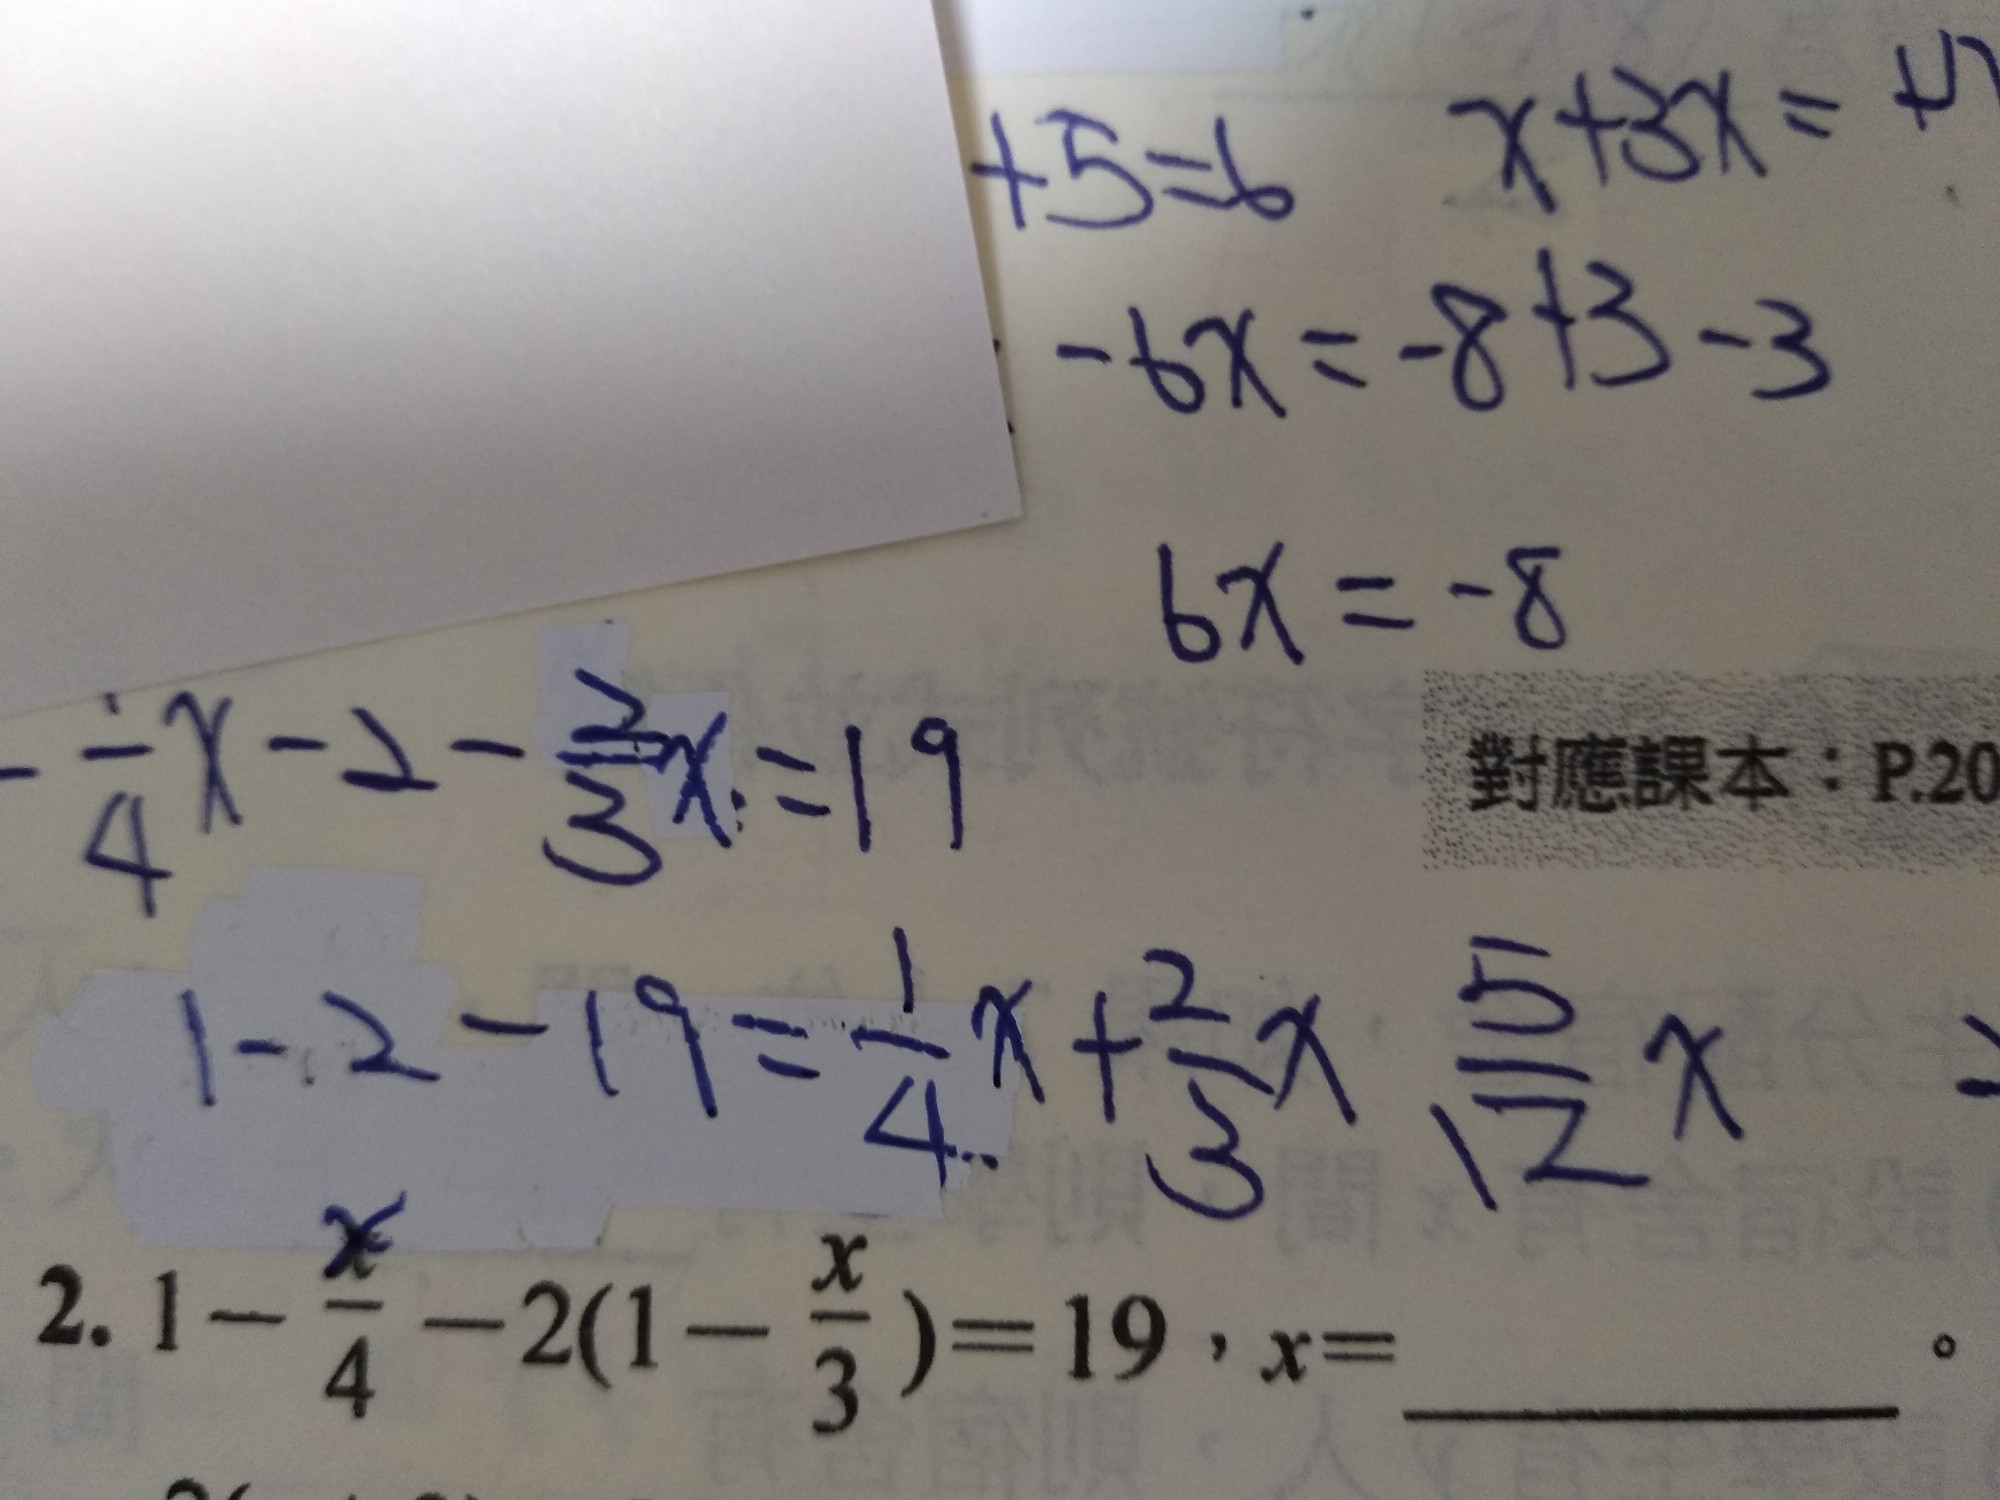 +5=6 x+3x=
-6x=-8+3-3
6x=-8
-1/4x-2-2/3x=19
對應課本：P.20
1-2-19=1/4x+2/3x 5/12x
2. 1-x/4-2(1-x/3)=19，x=______。